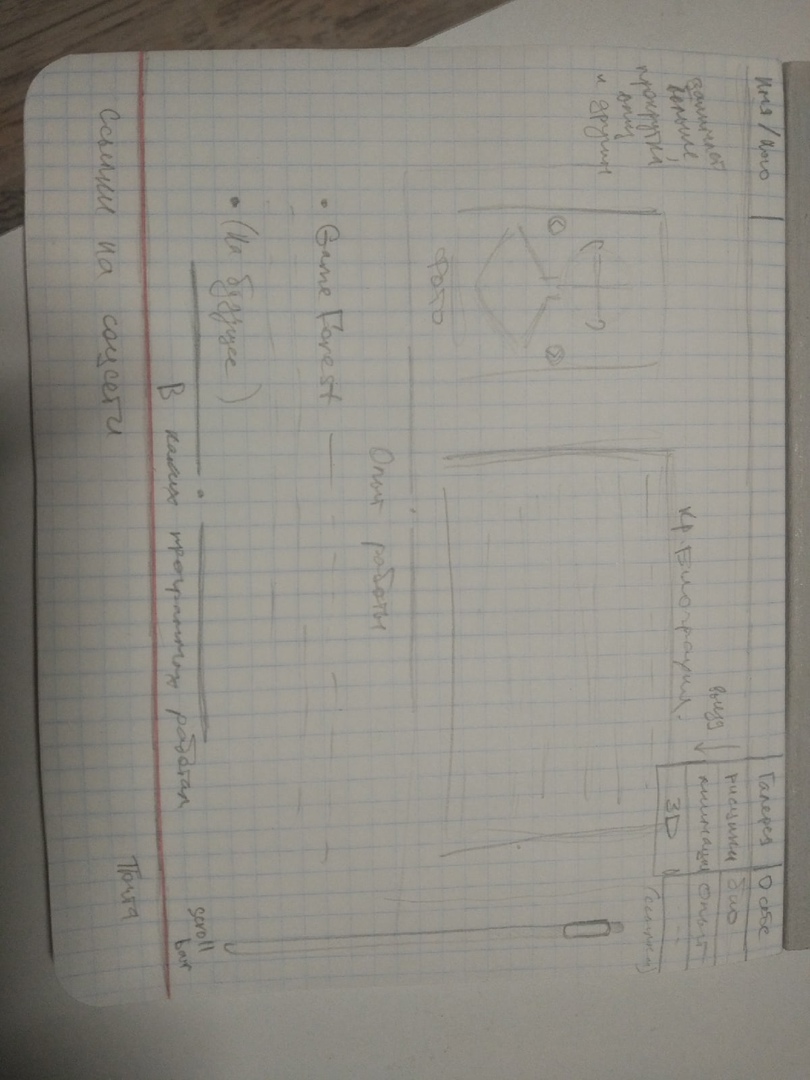 Имя / Лого
Галерея
О себе
рисунки
био
анимация
опыт
3D
(ссылки)
выезд
занимает
больше,
прокрутка
вниз
к другим
Кр. Биография.
Фото
Опыт работы
• Game Forest
• (На будущее)
В каких программах работал
scroll
bar
Ссылки на соцсети
Почта